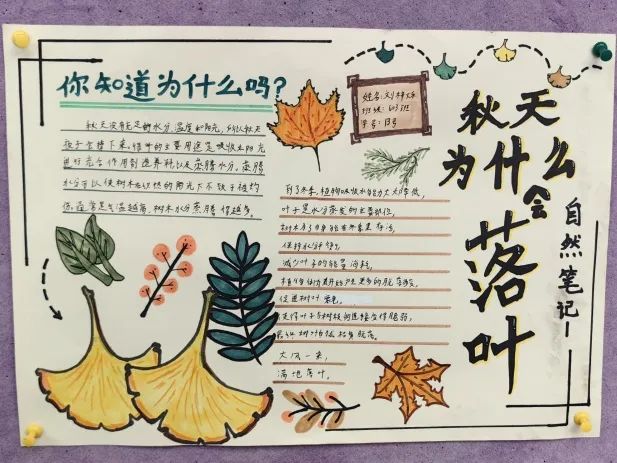 你知道为什么吗?
秋天没有足够水分、温度和阳光,所以秋天
叶子会掉下来。植物的主要用途是吸收太阳光
进行光合作用制造养料以及蒸腾水分。蒸腾
水分可以使树木在炎热的阳光下不致于被灼
伤。通常是气温越高,树木水分蒸腾得越多。
姓名:刘梓
班级:
学号:13号
到了冬季,植物吸收水的能力大大降低,
叶子是水分蒸发的主要部位,
树木为了自身能在冬季里存活,
保持水分平衡,
减少叶子的能量消耗,
植物体内就开始产生更多的脱落酸,
促进树叶
使得叶子与树枝间连接变得脆弱,
最终树叶枯黄脱落。
大风一来,
满地落叶。
秋天
为什么
会
落
叶
自然笔记